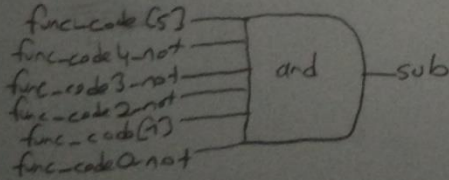 func_code[5]
func_code4_not
func_code3_not
func_code2_not
func_code[1]
func_code0_not
and
sub